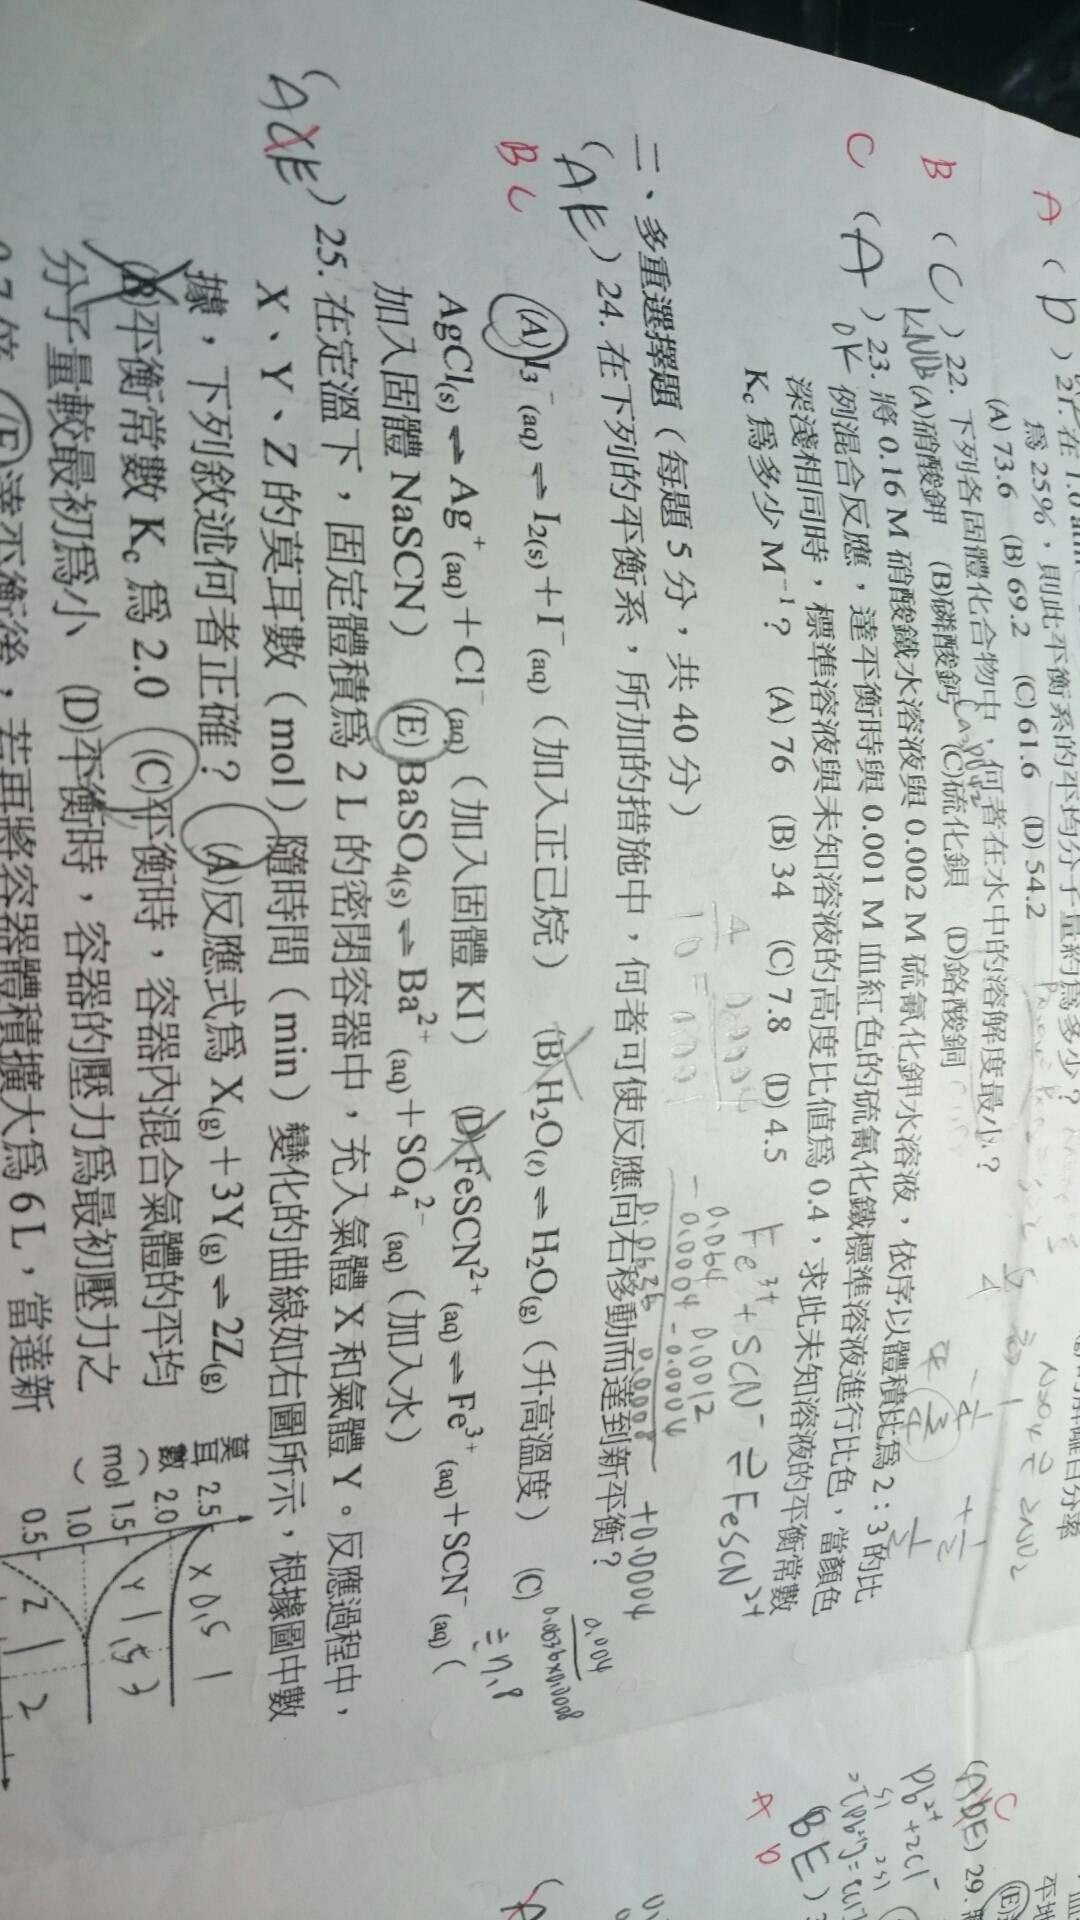 A (D) 21. 在 1.0 atm
為 25%，則此平衡系的平均分子量約為多少？
(A) 73.6 (B) 69.2 (C) 61.6 (D) 54.2
N2O4 ⇌ 2NO2
B (C) 22. 下列各固體化合物中，何者在水中的溶解度最小？
(A)硝酸鉀 (B)磷酸鈣 (C)硫化鋇 (D)鉻酸銅
C (A) 23. 將 0.16 M 硝酸鐵水溶液與 0.002 M 硫氰化鉀水溶液，依序以體積比為 2：3 的比
例混合反應，達平衡時與 0.001 M 血紅色的硫氰化鐵標準溶液進行比色，當顏色
深淺相同時，標準溶液與未知溶液的高度比值為 0.4，求此未知溶液的平衡常數
Kc 為多少 M⁻¹？ (A) 76 (B) 34 (C) 7.8 (D) 4.5
Fe³⁺ + SCN⁻ ⇌ FeSCN²⁺
0.064 0.0012
-0.0004 -0.0004 +0.0004
0.0008
二、多重選擇題（每題 5 分，共 40 分）
(AE) 24. 在下列的平衡系，所加的措施中，何者可使反應向右移動而達到新平衡？
BC
(A) I3⁻(aq) ⇌ I2(s)＋I⁻(aq)（加入正己烷） (B) H2O(ℓ) ⇌ H2O(g)（升高溫度） (C)
AgCl(s) ⇌ Ag⁺(aq)＋Cl⁻(aq)（加入固體 KI） (D) FeSCN²⁺(aq) ⇌ Fe³⁺(aq)＋SCN⁻(aq)（
加入固體 NaSCN） (E) BaSO4(s) ⇌ Ba²⁺(aq)＋SO4²⁻(aq)（加入水）
(ACE) 25. 在定溫下，固定體積為 2 L 的密閉容器中，充入氣體 X 和氣體 Y。反應過程中，
X、Y、Z 的莫耳數（mol）隨時間（min）變化的曲線如右圖所示，根據圖中數
據，下列敘述何者正確？ (A)反應式為 X(g)＋3Y(g) ⇌ 2Z(g)
(B)平衡常數 Kc 為 2.0 (C)平衡時，容器內混合氣體的平均
分子量較最初為小 (D)平衡時，容器的壓力為最初壓力之
0.7 倍 (E)達平衡後，若再將容器體積擴大為 6 L，當達新
莫耳數
（mol）
2.5
2.0
1.5
1.0
0.5
X 0.5 1
Y 1.5 3
Z 1 2
C
(ABE) 29.
Pb²⁺+2Cl⁻
(BE)
A D